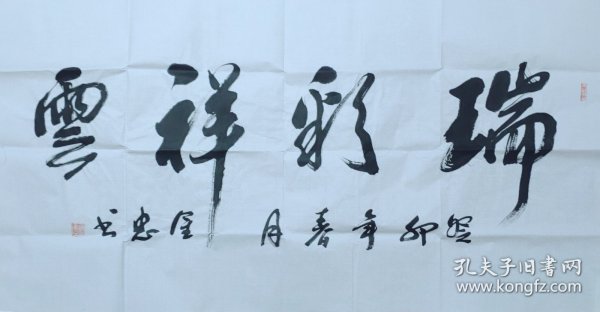 瑞彩祥雲
癸卯年春月金忠书
孔夫子旧书网
www.kongfz.com